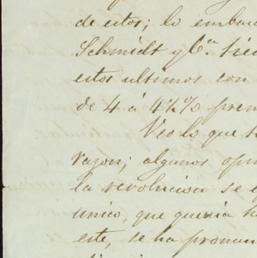 de estos; lo embar
Schmidt y Cª.
estos ultimos con
de 4 á 4½% prem
Veo lo que
razon; algunos opi
la revolucion se
unico, que queria
este, se ha pronun